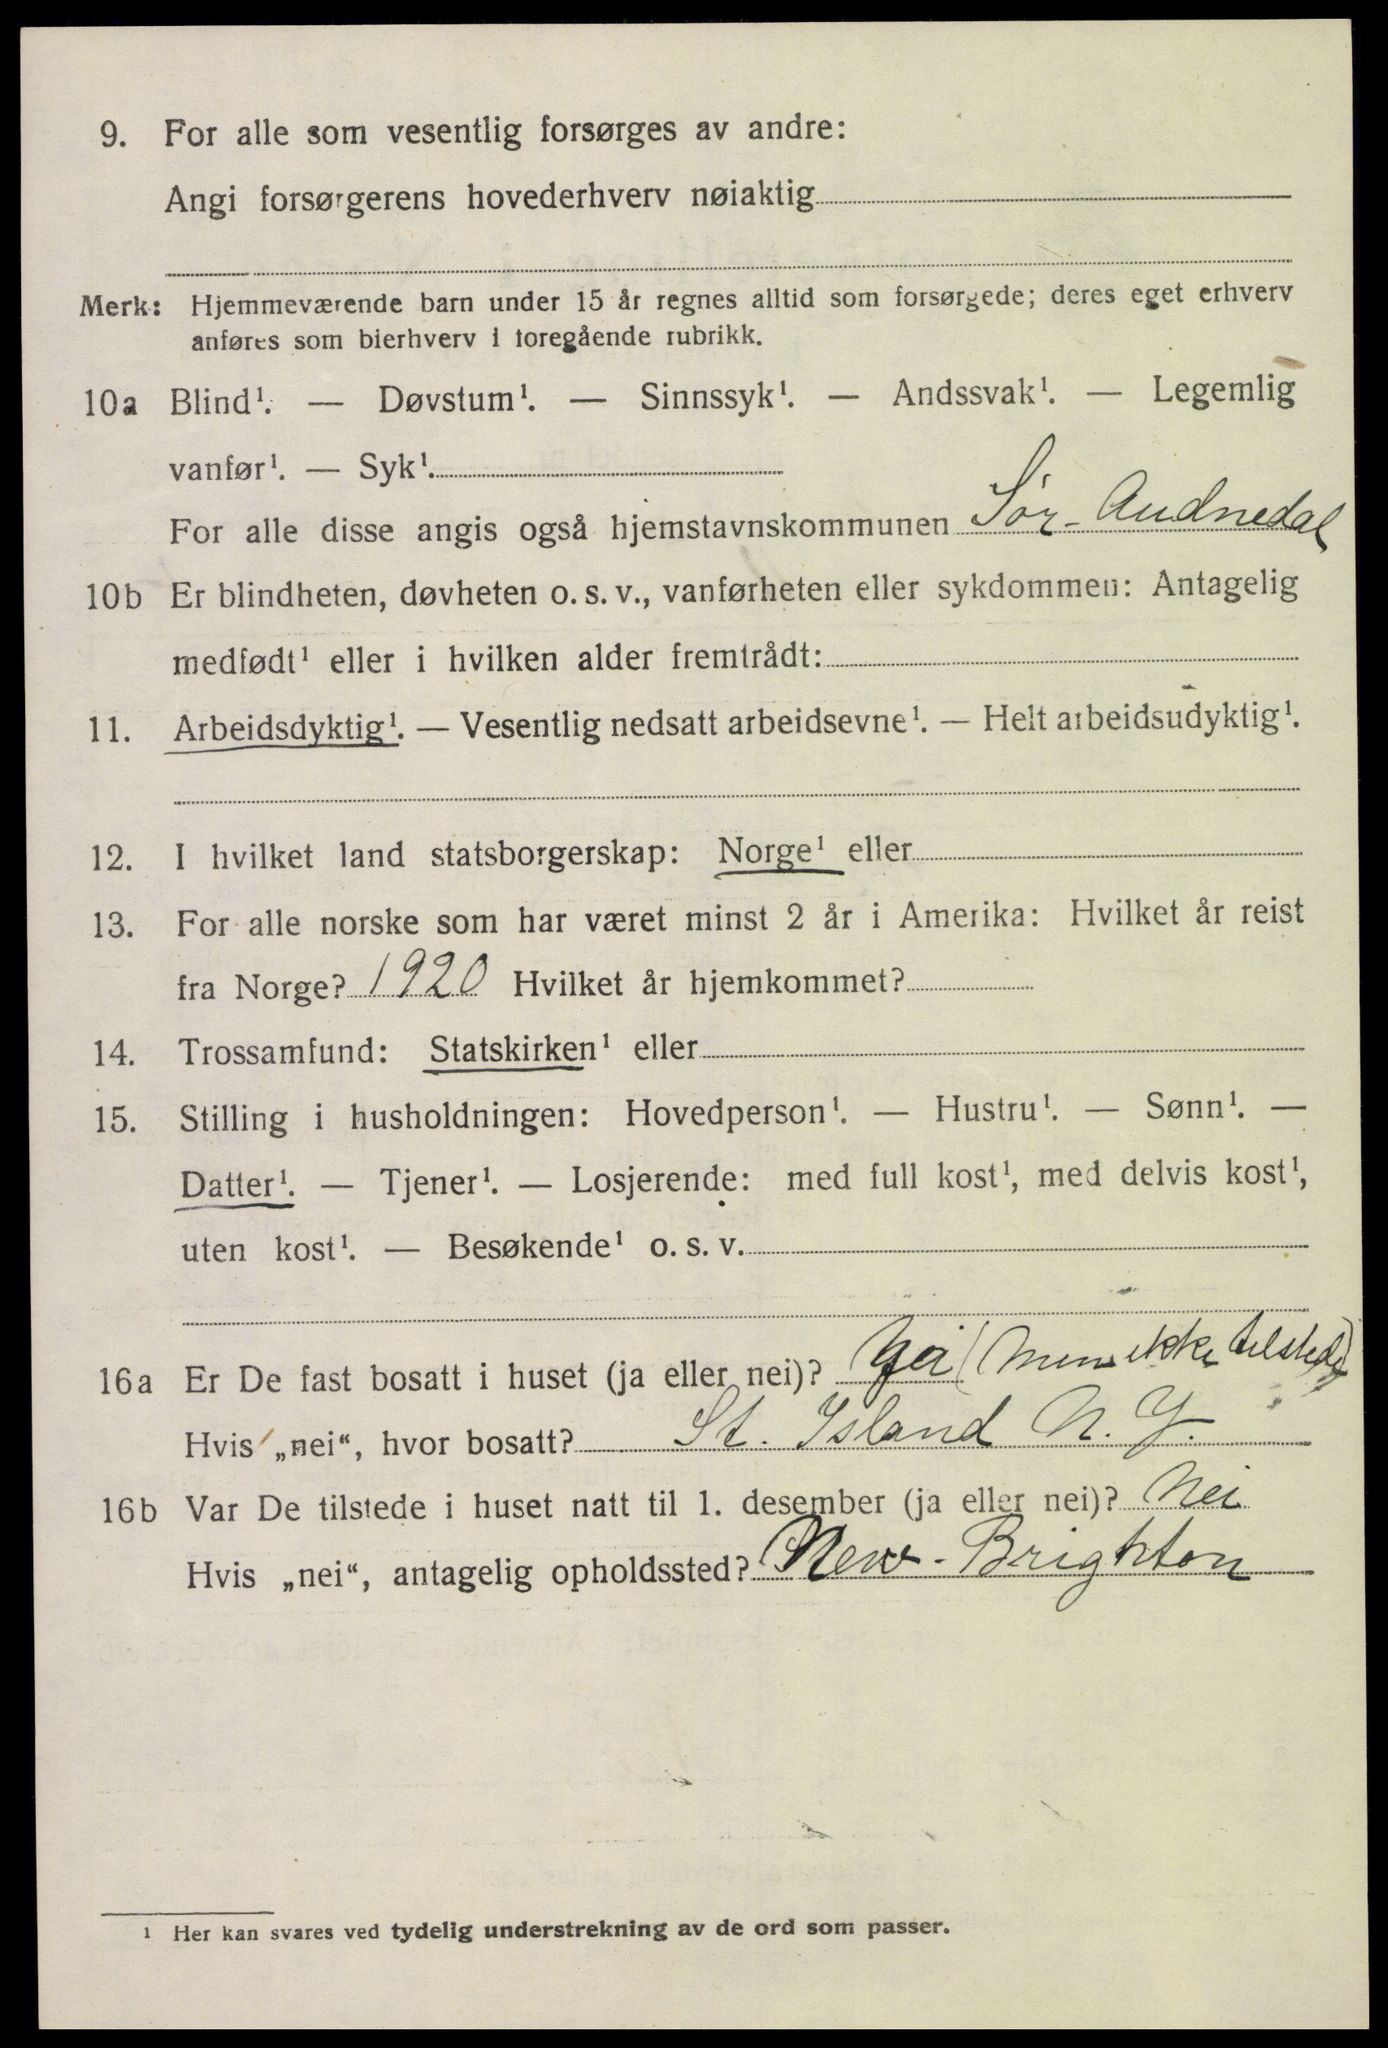 9. For alle som vesentlig forsørges av andre:
Angi forsørgerens hovederhverv nøiaktig
Merk: Hjemmeværende barn under 15 år regnes alltid som forsørgede; deres eget erhverv
anføres som bierhverv i foregående rubrikk.
10a Blind¹. — Døvstum¹. — Sinnssyk¹. — Andssvak¹. — Legemlig
vanfør¹. — Syk¹.
For alle disse angis også hjemstavnskommunen Sør-Audnedal
10b Er blindheten, døvheten o. s. v., vanførheten eller sykdommen: Antagelig
medfødt¹ eller i hvilken alder fremtrådt:
11. Arbeidsdyktig¹. — Vesentlig nedsatt arbeidsevne¹. — Helt arbeidsudyktig¹.
12. I hvilket land statsborgerskap: Norge¹ eller
13. For alle norske som har været minst 2 år i Amerika: Hvilket år reist
fra Norge? 1920 Hvilket år hjemkommet?
14. Trossamfund: Statskirken¹ eller
15. Stilling i husholdningen: Hovedperson¹. — Hustru¹. — Sønn¹. —
Datter¹. — Tjener¹. — Losjerende: med full kost¹, med delvis kost¹,
uten kost¹. — Besøkende¹ o. s. v.
16a Er De fast bosatt i huset (ja eller nei)? (men ikke tilstede)
Hvis „nei“, hvor bosatt? St. Island N. Y.
16b Var De tilstede i huset natt til 1. desember (ja eller nei)? Nei
Hvis „nei“, antagelig opholdssted? New-Brighton
¹ Her kan svares ved tydelig understrekning av de ord som passer.